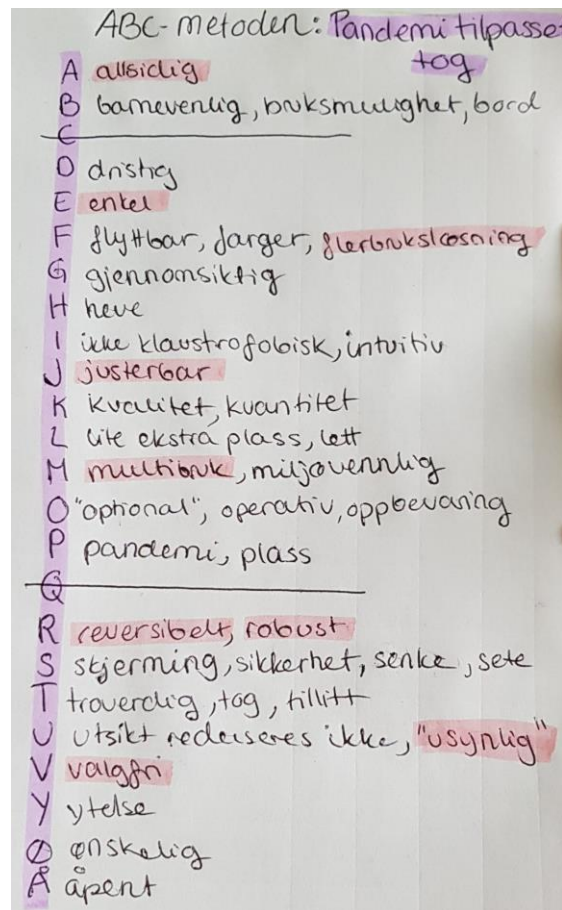 ABC-metoden: Pandemi tilpasse
tog
A allsidig
B barnevenlig, bruksmulighet, bord
C
D dristig
E enkel
F flyttbar, farger, flerbruksløsning
G gjennomsiktig
H heve
I ikke klaustrofobisk, intuitiv
J justerbar
K kvalitet, kvantitet
L lite ekstra plass, lett
M multibruk, miljøvennlig
O "optional", operativ, oppbevaring
P pandemi, plass
Q
R reversibelt, robust
S skjerming, sikkerhet, senke, sete
T troverdig, tog, tillitt
U utsikt reduseres ikke, "usynlig"
V valgfri
Y ytelse
Ø ønskelig
Å åpent